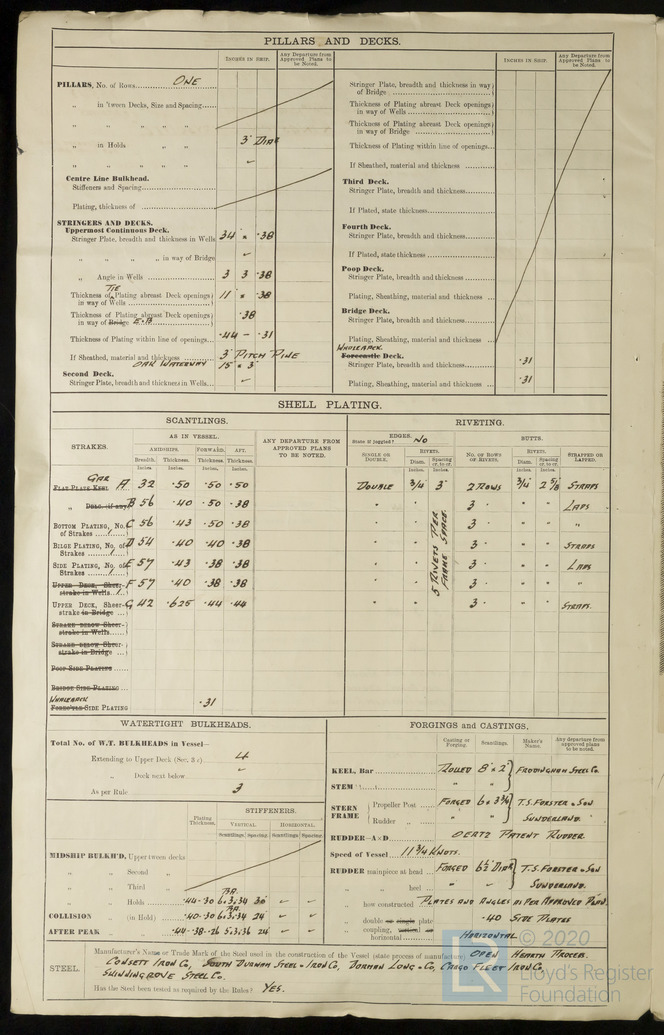 PILLARS AND DECKS.
INCHES IN SHIP.
Any Departure from Approved Plans to be Noted.
INCHES IN SHIP.
Any Departure from Approved Plans to be Noted.
PILLARS, No. of Rows ONE
„ in 'tween Decks, Size and Spacing
„ „ „ „ „
„ in Holds „ „ 3" DIAR
„ „ „ „ ✓
Centre Line Bulkhead.
Stiffeners and Spacing
Plating, thickness of
STRINGERS AND DECKS.
Uppermost Continuous Deck.
Stringer Plate, breadth and thickness in Wells 34 × .38
„ „ „ „ in way of Bridge ✓
„ Angle in Wells 3 3 .38
TIE
Thickness of Plating abreast Deck openings in way of Wells 11 × .38
Thickness of Plating abreast Deck openings in way of Bridge .38
Thickness of Plating within line of openings .44 - .31
If Sheathed, material and thickness 3" PITCH PINE
OAK WATERWAY 15" × 3"
Second Deck.
Stringer Plate, breadth and thickness in Wells ✓
Stringer Plate, breadth and thickness in way of Bridge
Thickness of Plating abreast Deck openings in way of Wells
Thickness of Plating abreast Deck openings in way of Bridge
Thickness of Plating within line of openings
If Sheathed, material and thickness
Third Deck.
Stringer Plate, breadth and thickness
If Plated, state thickness
Fourth Deck.
Stringer Plate, breadth and thickness
If Plated, state thickness
Poop Deck.
Stringer Plate, breadth and thickness
Plating, Sheathing, material and thickness
Bridge Deck.
Stringer Plate, breadth and thickness
Plating, Sheathing, material and thickness
WHALEBACK
Forecastle Deck.
Stringer Plate, breadth and thickness .31
Plating, Sheathing, material and thickness .31
SHELL PLATING.
SCANTLINGS.
RIVETING.
STRAKES.
AS IN VESSEL.
AMIDSHIPS. FORWARD. AFT.
Breadth. Thickness. Thickness. Thickness.
Inches. Inches. Inches. Inches.
ANY DEPARTURE FROM APPROVED PLANS TO BE NOTED.
EDGES. State if joggled? No
BUTTS.
SINGLE OR DOUBLE.
RIVETS.
Diam. Spacing cr. to cr.
Inches. Inches.
No. OF ROWS OF RIVETS.
RIVETS.
Diam. Spacing cr. to cr.
Inches. Inches.
STRAPPED OR LAPPED.
GAR
FLAT PLATE KEEL A 32 .50 .50 .50 DOUBLE 3/4 3" 2 ROWS 3/4 2 5/8 STRAPS
„ DBLG. (if any) B 56 .40 .50 .38 " " 3 " " " LAPS
BOTTOM PLATING, No. of Strakes C 56 .43 .50 .38 " " 3 " " " "
BILGE PLATING, No. of Strakes D 54 .40 .40 .38 " " 3 " " " STRAPS
SIDE PLATING, No. of Strakes E 57 .43 .38 .38 " " 3 " " " LAPS
UPPER DECK, Sheer-strake in Wells F 57 .40 .38 .38 " " 3 " " " "
UPPER DECK, Sheer-strake in Bridge G 42 .625 .44 .44 " " 3 " " " STRAPS.
5 RIVETS PER FRAME SPACE.
STRAKE BELOW Sheer-strake in Wells
STRAKE BELOW Sheer-strake in Bridge
POOP SIDE PLATING
BRIDGE SIDE PLATING
WHALEBACK
FORE'TLE SIDE PLATING .31
WATERTIGHT BULKHEADS.
Total No. of W.T. BULKHEADS in Vessel—
Extending to Upper Deck (Sec. 3 c) 4
„ Deck next below ✓
As per Rule 3
Plating Thickness.
STIFFENERS.
VERTICAL HORIZONTAL.
Scantlings Spacing Scantlings Spacing
MIDSHIP BULKH'D, Upper tween decks
„ „ Second „
„ „ Third „
B.A.
„ „ Holds .44-.30 6.3.34 30" ✓ ✓
B.A.
COLLISION „ (in Hold) .40-.30 6.3.34 24" ✓ ✓
AFTER PEAK „ .44-.38-.26 5.3.36 24" ✓ ✓
FORGINGS and CASTINGS.
Casting or Forging. Scantlings. Maker's Name. Any departure from approved plans to be noted.
KEEL, Bar ROLLED 8" × 2" FRODINGHAM STEEL Co.
STEM " "
STERN FRAME Propeller Post FORGED 6 × 3 3/4 T.S. FORSTER & SON
Rudder „ " " SUNDERLAND.
RUDDER—A×D OERTZ PATENT RUDDER.
Speed of Vessel 11 3/4 KNOTS.
RUDDER mainpiece at head FORGED 6 1/2 DIAR T.S. FORSTER & SON
„ „ heel " ✓ SUNDERLAND.
„ how constructed PLATES AND ANGLES AS PER APPROVED PLAN.
„ double or single plate .40 SIDE PLATES
„ coupling, vertical or horizontal HORIZONTAL
STEEL.
Manufacturer's Name or Trade Mark of the Steel used in the construction of the Vessel (state process of manufacture) OPEN HEARTH PROCESS.
CONSETT IRON Co, SOUTH DURHAM STEEL & IRON Co, DORMAN LONG & Co, CARGO FLEET IRON Co,
SKINNINGROVE STEEL Co.
Has the Steel been tested as required by the Rules? YES.
© 2020
Lloyd's Register
Foundation